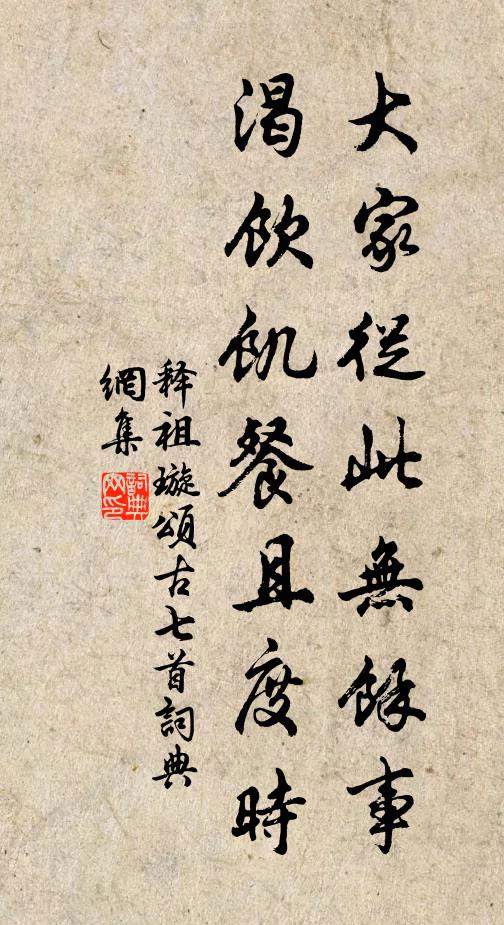 大家從此無餘事
渴飲飢餐且度時
释祖璇頌古七首詞典
網集
詞典
网印